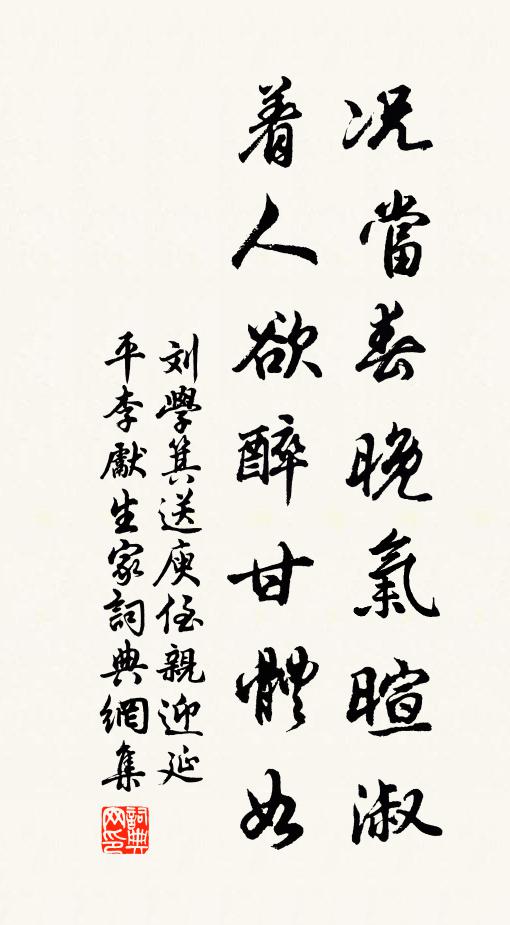 况當春晚氣暄淑
着人欲醉甘體如
刘學箕送庾侄親迎延
平李獻生家詞典網集
詞典
网印